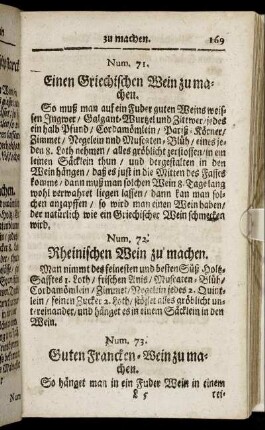 zu machen. 169
Num. 71.
Einen Griechischen Wein zu ma-
chen.
So muß man auf ein Fuder guten Weins weis-
sen Ingwer / Galgant-Wurtzel und Zittwer / jedes
ein halb Pfund / Cordamömlein / Pariß-Körner /
Zimmet / Negelein und Muscaten-Blüh / eines je-
den 8. Loth nehmen / alles gröblicht zerstossen / in ein
leinen Säcklein thun / und dergestalten in den
Wein hängen / daß es just in die Mitten des Fasses
komme / dann muß man solchen Wein 8. Tage lang
wohl verwahret liegen lassen / dann kan man sol-
chen anzapffen / so wird man einen Wein haben /
der natürlich wie ein Griechische Wein schmecken
wird.
Num. 72.
Rheinischen Wein zu machen.
Man nimmt des feinesten und besten Süß-Holtz-
Safftes 1. Loth / frischen Anis / Muscaten-Blüh /
Cordamömlein / Zimmet / Negelein jedes 2. Quint-
lein / feinen Zucker 2. Loth / stösset alles gröblicht un-
tereinander / und hänget es in einem Säcklein in den
Wein.
Num. 73.
Guten Francken-Wein zu ma-
chen.
So hänget man in ein Fuder Wein in einem
L 5 rei-